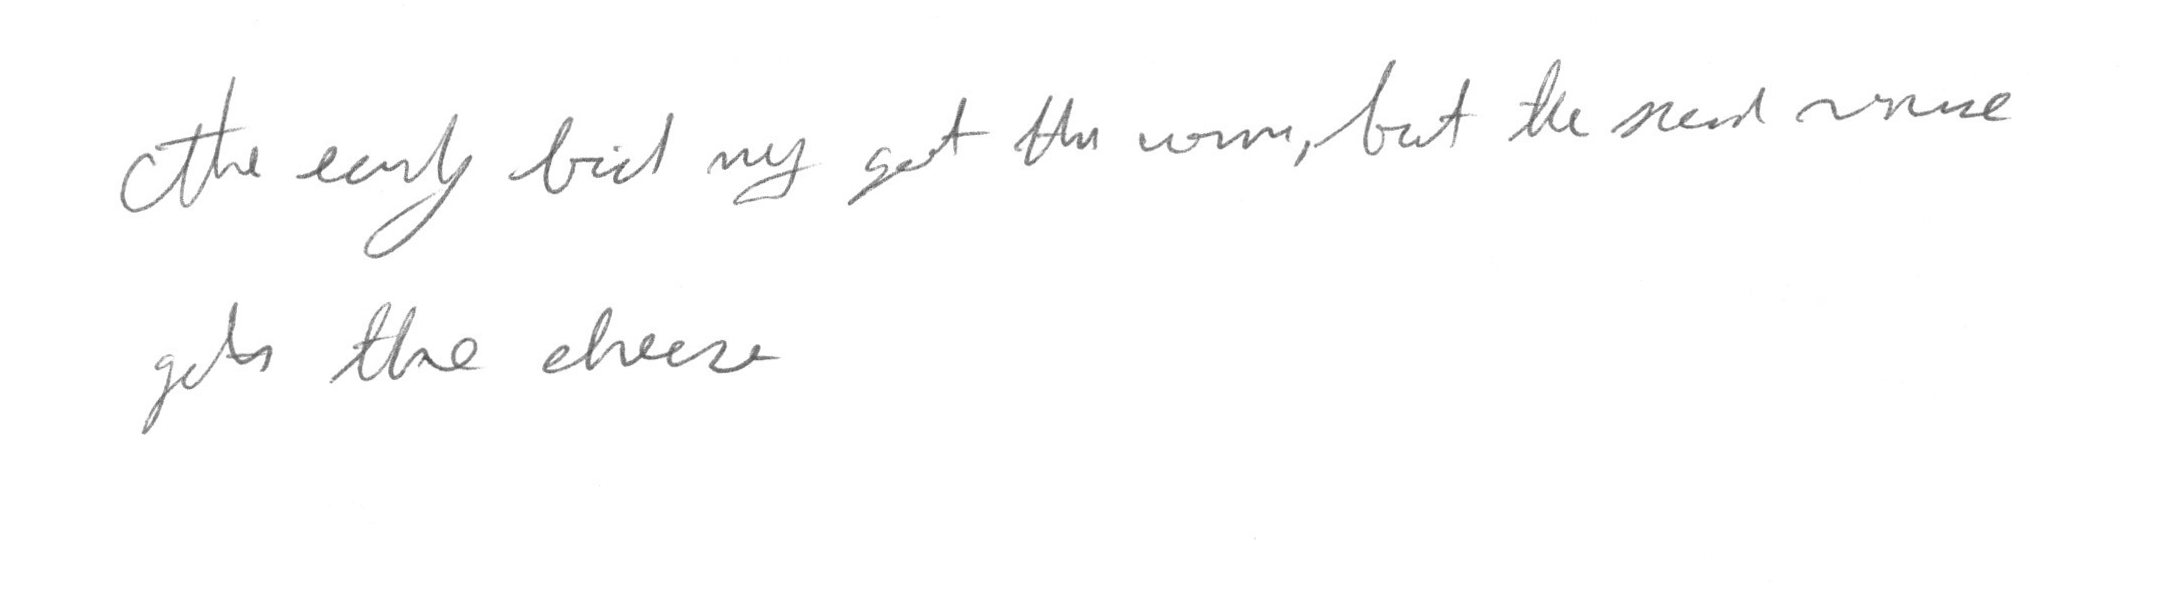 The early bird may get the worm, but the second mouse
gets the cheese